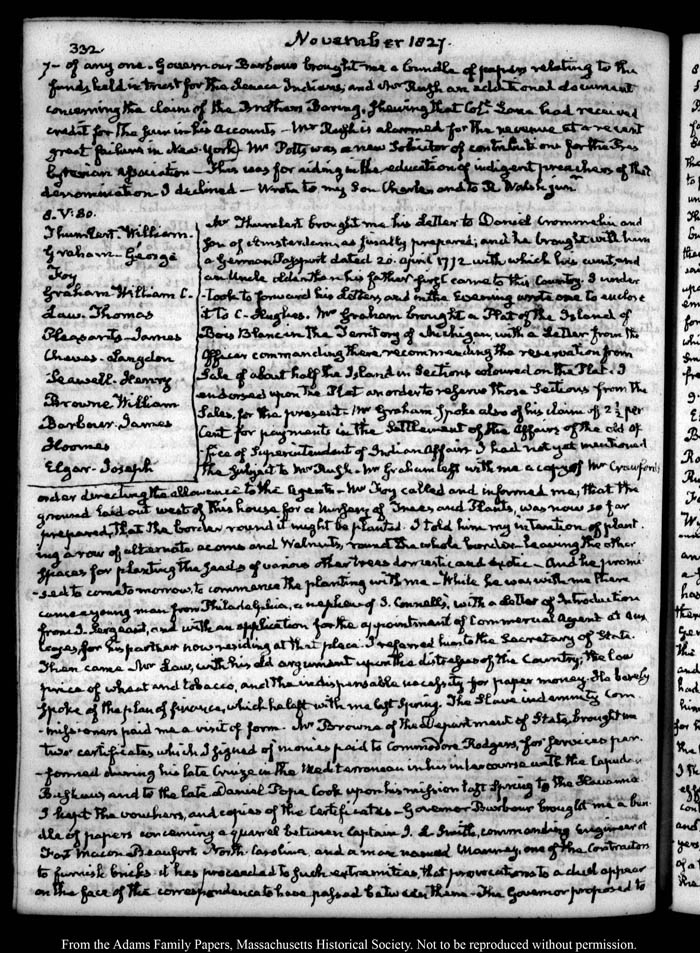 332
November 1827.
7— of any one. Governour Barbour brought me a bundle of papers relating to the
funds held in trust for the Seneca Indians; and Mr Rush an additional document
concerning the claim of the Brothers Baring, shewing that Coll. Lane had received
credit for the sum in his accounts — Mr Rush is alarmed for the revenue at a recent
great failure in New-York. Mr Potts was a new Solicitor of contributions for the Pres
byterian Association — This was for aiding in the education of indigent preachers of that
denomination. I declined — Wrote to my Son Charles and to R Walsh jun
8. V:30.
Thumlert. William.
Graham - George
Foy
Graham William C.
Law. Thomas
Pleasants - James
Cheves - Langdon
Seawell. Henry
Browne William
Barbour. James
Hoomes
Elgar - Joseph
Mr Thumlert brought me his Letter to Daniel Crommelin and
Son of Amsterdam, as finally prepared; and he brought with him
a German Passport dated 20. April 1772 with which his aunt, and
an Uncle older than his father first came to this Country. I under
-took to forward his Letter, and in the Evening wrote one to enclose
it to C. Hughes. Mr Graham brought a Plat of the Island of
Bois Blanc in the Territory of Michigan with a Letter from the
Officer commanding there, recommending the reservation from
Sale of about half the Island in Sections coloured on the Plat. I
endorsed upon the Plat an order to reserve those Sections from the
Sales, for the present. Mr Graham spoke also of his claim of 2½ per
Cent for payments in the Settlement of the Affairs of the old of
-fice of Superintendent of Indian Affairs. I had not yet mentioned
the Subject to Mr Rush. Mr Graham left with me a copy of Mr Crawford's
order directing the allowance to the Agents — Mr Foy called and informed me, that the
ground laid out west of this house for a Nursery of Trees and Plants, was now so far
prepared, that the border round it might be planted. I told him my intention of plant
ing a row of alternate acorns and Walnuts, round the whole border leaving the other
Spaces for planting the seeds of various other trees domestic and exotic — And he promi
-sed to come tomorrow, to commence the planting with me — While he was with me there
came a young man from Philadelphia, a nephew of J. Connell's, with a Letter of Introduction
from J. Sergeant, and with an application for the appointment of Commercial Agent at Aux
Cayes, for his partner now residing at that place. I referred him to the Secretary of State.
Then came Mr Law, with his old argument upon the distresses of the Country, the low
price of wheat and tobacco, and the indispensable necessity for paper money. He barely
spoke of the plan of finance, which he left with me last Spring. The Slave indemnity Com
-missioners paid me a visit of form. Mr Browne of the Department of State, brought me
two certificates which I signed of monies paid to Commodore Rodgers, for services per
-formed during his late Cruize in the Mediterranean in his intercourse with the Capudan
Bashaw, and to the late Daniel Pope Cook upon his mission last Spring to the Havanna
I kept the vouchers, and copies of the Certificates — Governor Barbour brought me a bun
dle of papers concerning a quarrel between Captain J. L Smith, commanding Engineer at
Fort Macon Beaufort North-Carolina, and a man named Manney, one of the Contractors
to furnish bricks. it has proceeded to such extremities, that provocations to a duel appear
on the face of the correspondence to have passed between them — The Governor proposed to
From the Adams Family Papers, Massachusetts Historical Society. Not to be reproduced without permission.